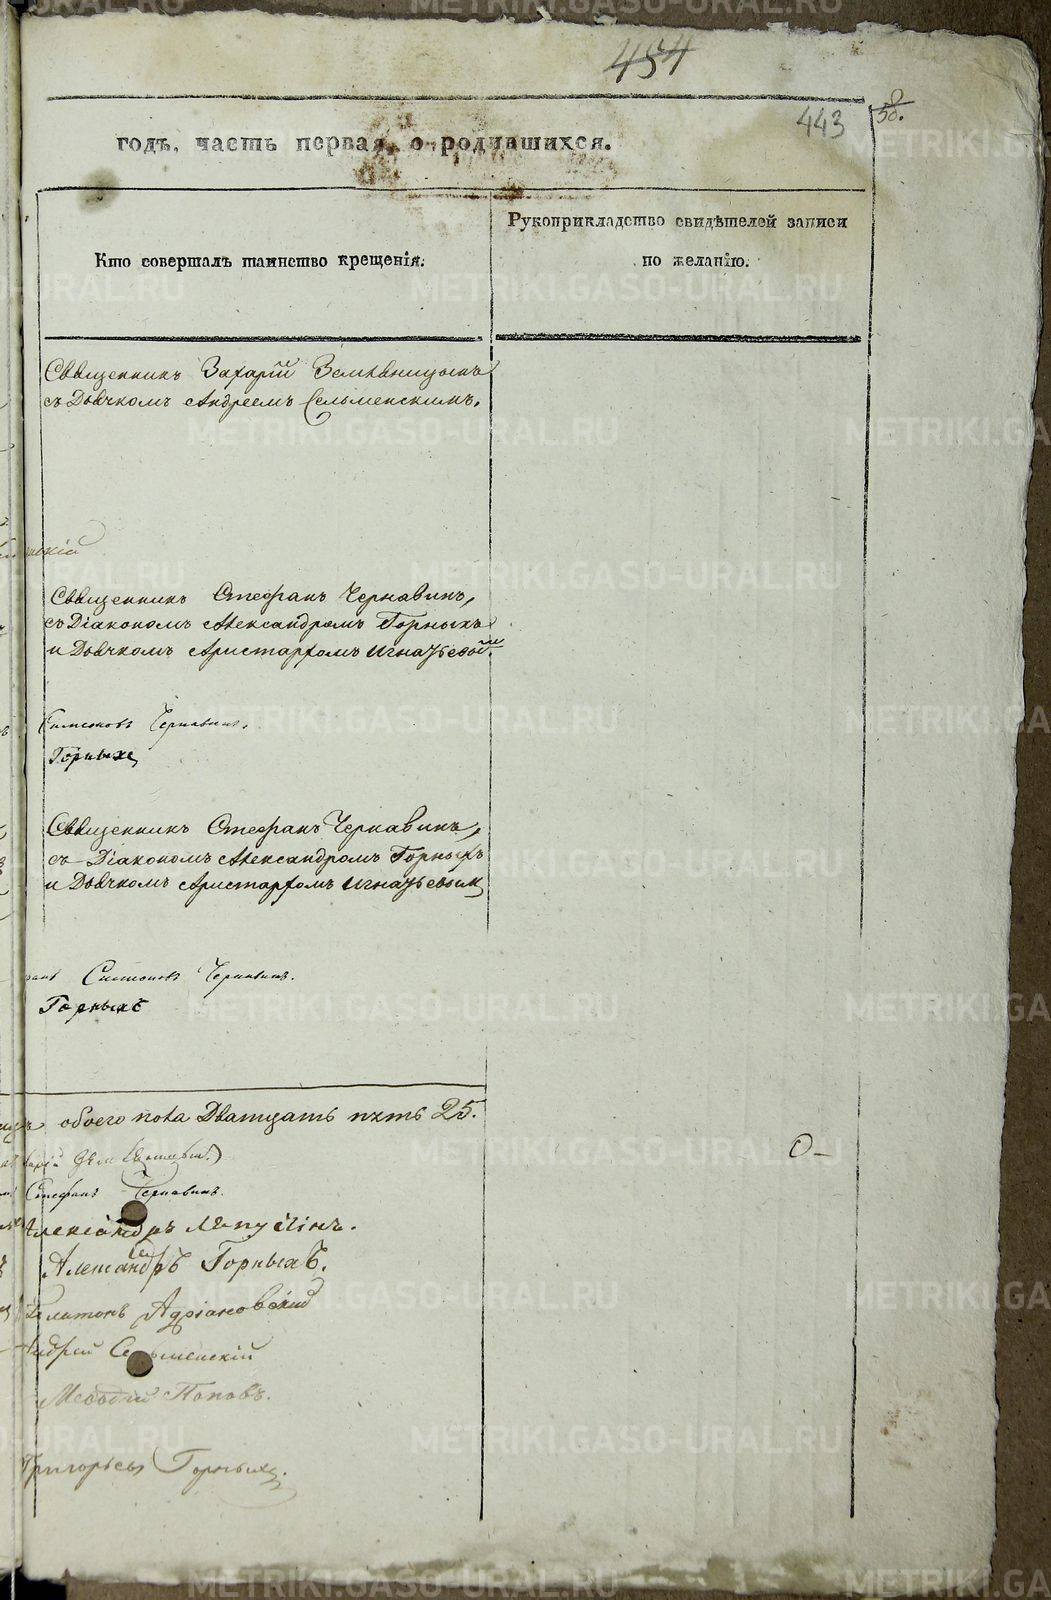 454
443
58.
годъ, часть первая, о родившихся.
Кто совершалъ таинство крещенія.
Рукоприкладство свидѣтелей записи
по желанію.
Священникъ Захарій Земляницынъ
съ Дьячкомъ Андреемъ Сельменскимъ.
Священникъ Стефанъ Чернавинъ,
съ Діакономъ Александромъ Горныхъ
и Дьячкомъ Аристархомъ Игнатьевой
Симеоновъ Чернавинъ.
Горныхъ
Священникъ Стефанъ Чернавинъ,
съ Діакономъ Александромъ Горныхъ
и Дьячкомъ Аристархомъ Игнатьевым
Симеоновъ Чернавинъ.
Горныхъ
обоего пола Дватцать пять 25.
О-
Стефанъ Чернавинъ.
Александръ Ляпустинъ.
Александръ Горныхъ.
Адріановскій
Андрей Сельменскій
Меѳодій Поповъ.
Григорьевъ Горныхъ.
METRIKI.GASO-URAL.RU